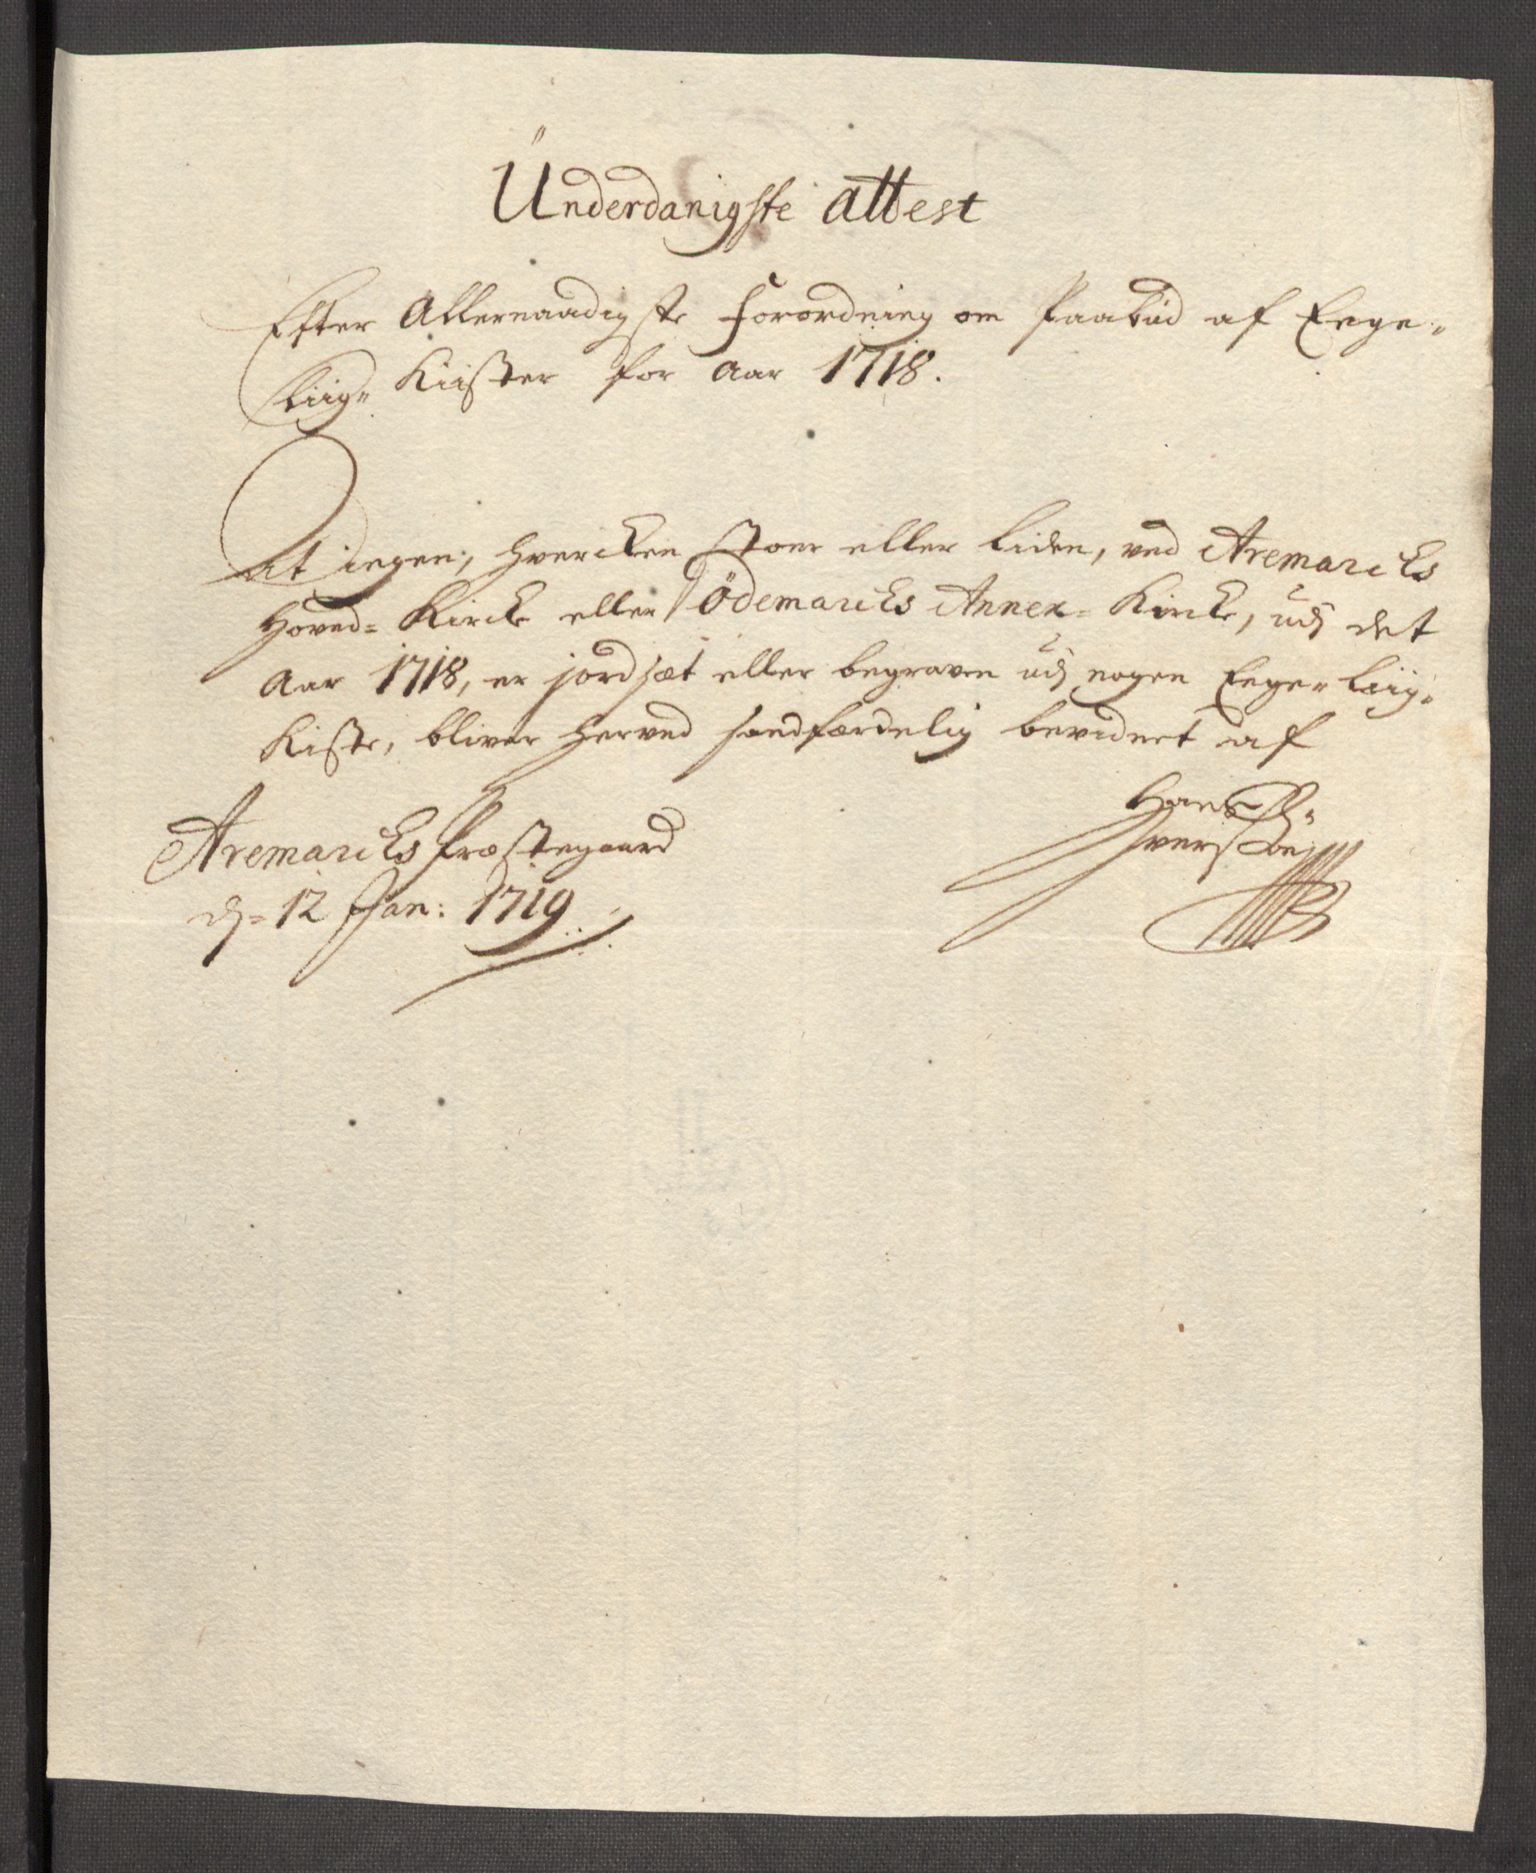 Underdanigste attest
Efter Allernaadigste Forordning om Paabud af Eege-
Liig- Kiister for Aar 1718.
At ingen, hvercken stoer eller Liden, ved Aremarcks
Hoved= Kircke eller Ödemarcks Annex= Kircke, udj det
Aar 1718, er jordsæt eller begraven udj nogen Eege- Liig-
Kiste, bliver herved sandfærdelig bevidnet af
Hans
Iversøn
Aremarcks Præstegaard
dj= 12 Jan: 1719